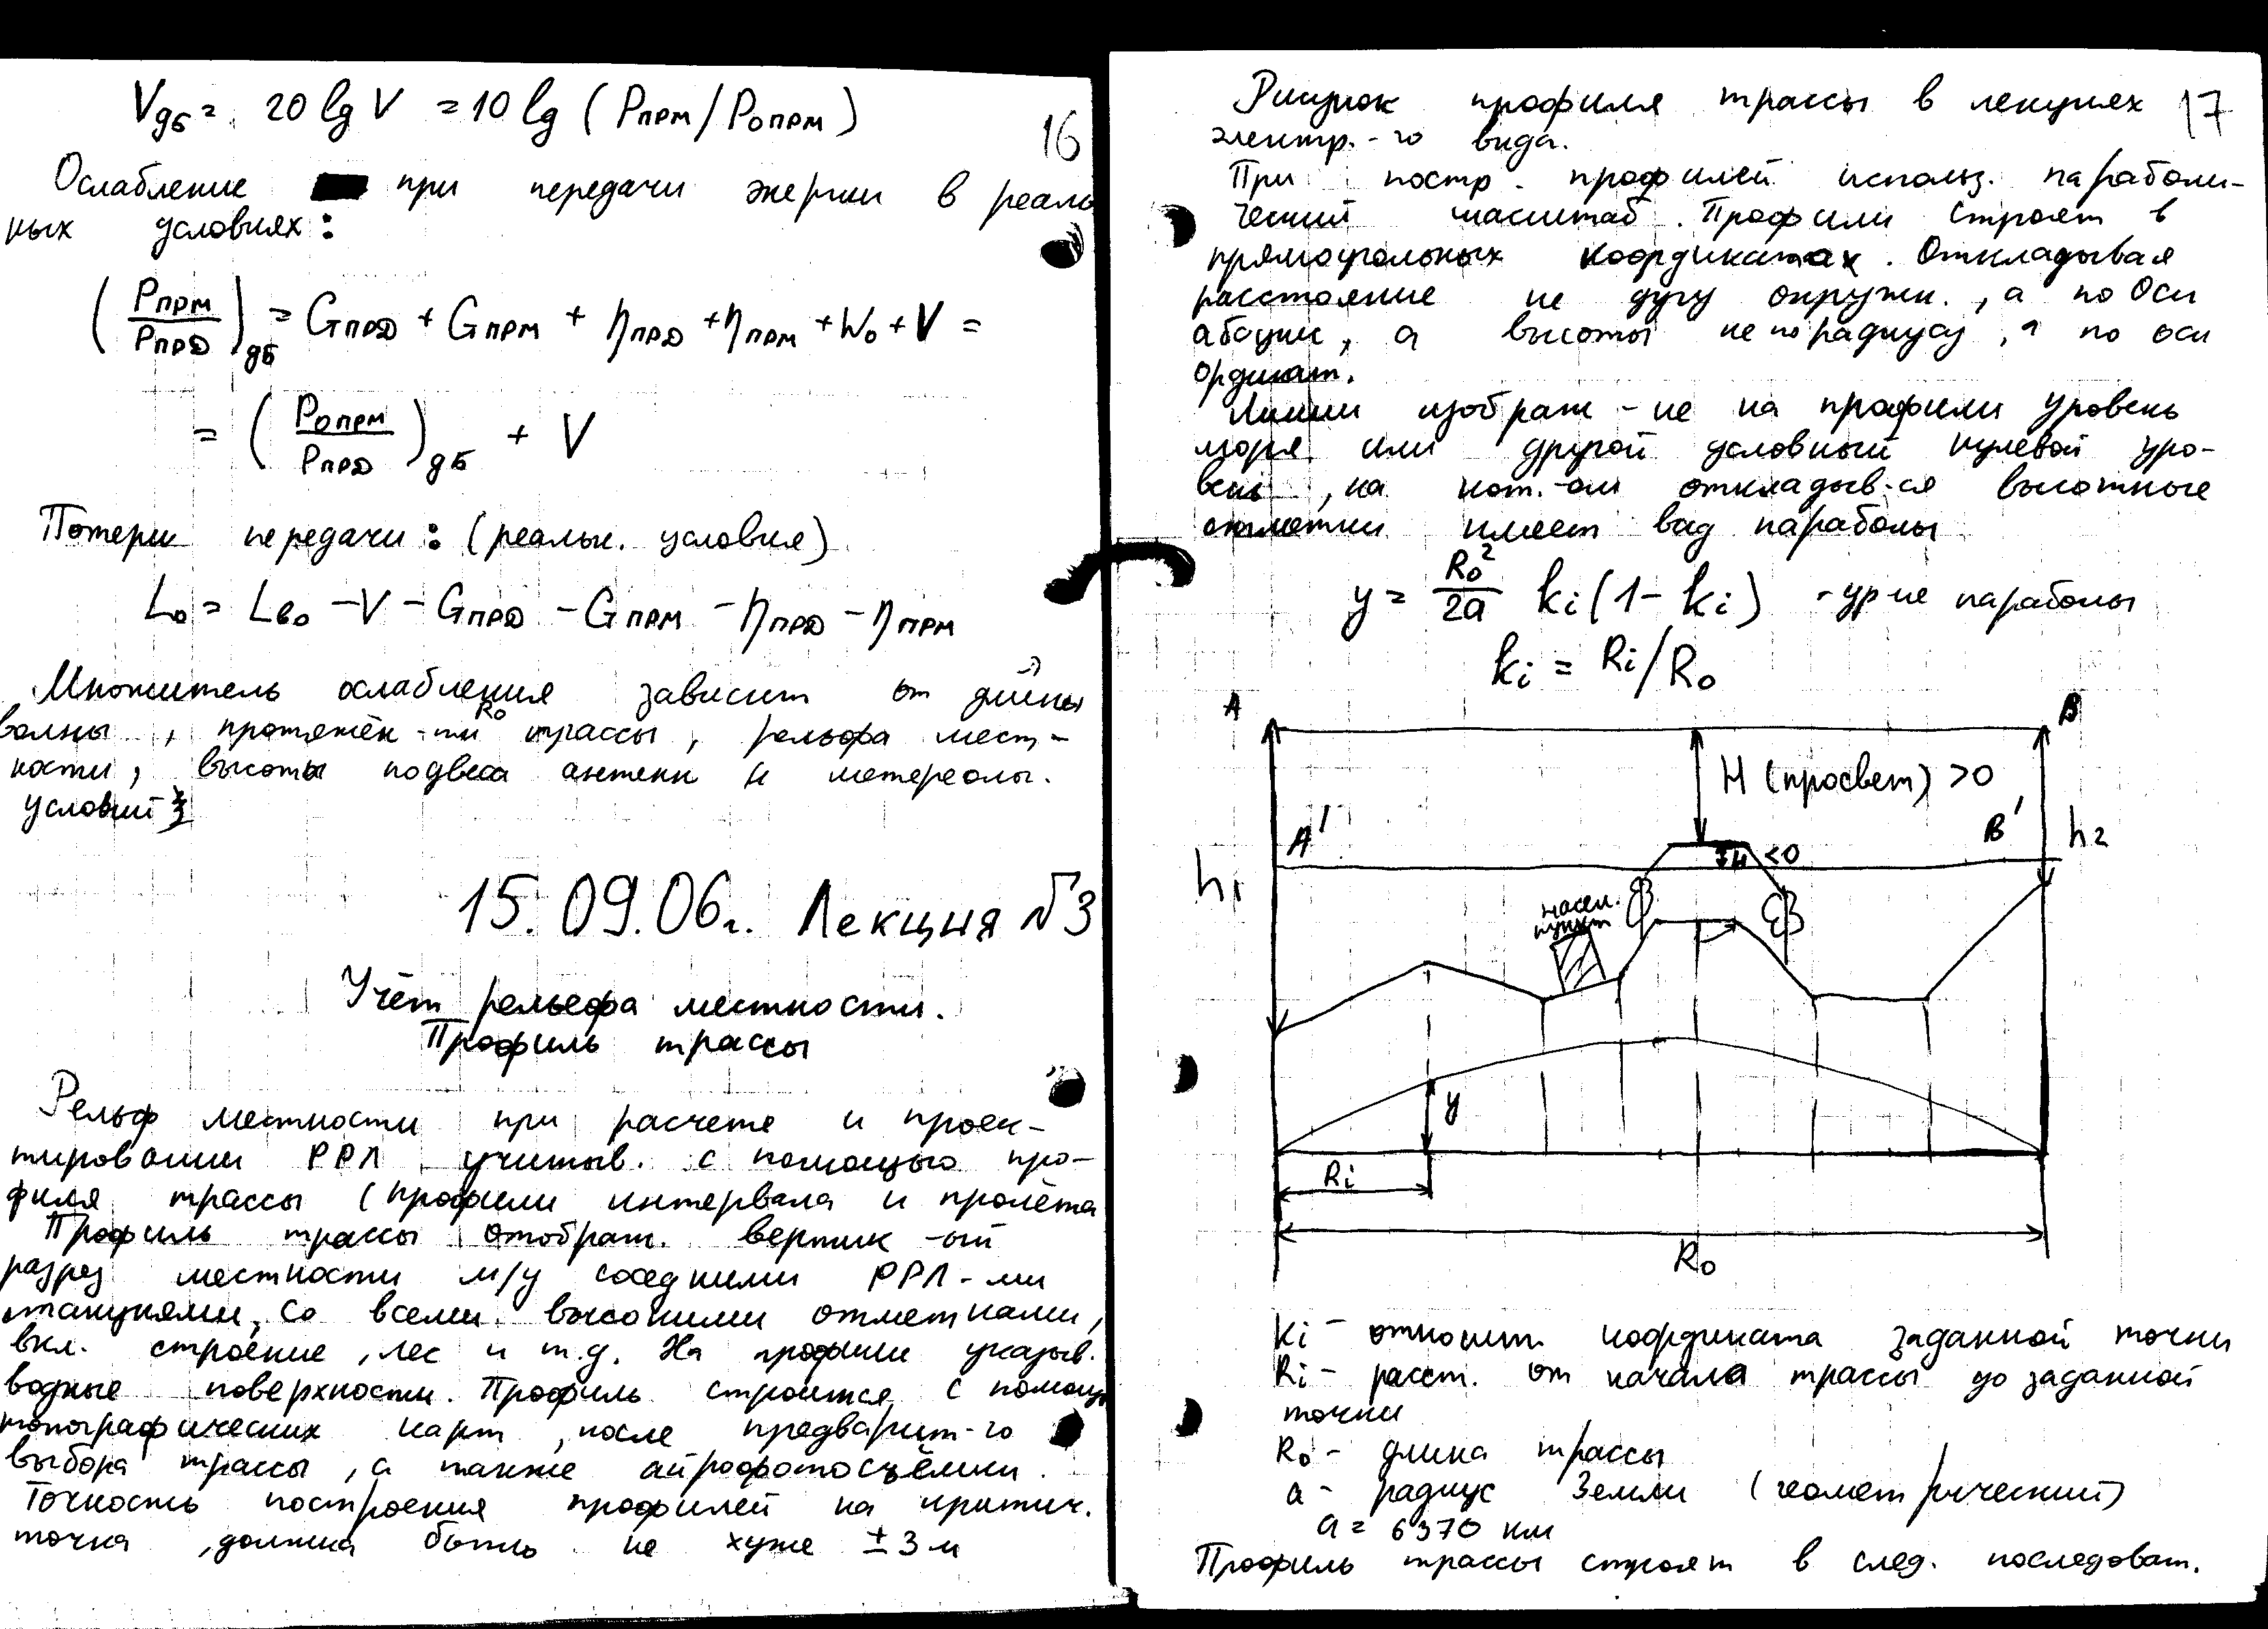 Vдб = 20 lg V = 10 lg (Pпрм/Pопрм)
16
Ослабление при передачи энергии в реаль
ных условиях:
(Pпрм/Pпрд)дб = Gпрд + Gпрм + ηпрд + ηпрм + W₀ + V =
= (Pопрм/Pпрд)дб + V
Потери передачи: (реальн. условия)
L₀ = Lв₀ − V − Gпрд − Gпрм − ηпрд − ηпрм
Множитель ослабления зависит от длины
волны, протяжён-ти R₀ трассы, рельфа мест-
ности, высоты подвеса антенн и метереолог.
условий
15.09.06г. Лекция №3
Учёт рельефа местности.
Профиль трассы
Рельф местности при расчете и проек-
тировании РРЛ учитыв. с помощью про-
филя трассы (профили интервала и пролёта
Профиль трассы отображ. вертик-ый
разрез местности м/у соседними РРЛ-ми
станциями, со всеми высокими отметками,
вкл. строение, лес и т.д. На профили указыв.
водные поверхности. Профиль строится с помощ
топографических карт, после предварит-го
выбора трассы, а также аэрофотосъёмки.
Точность построения профилей на критич.
точка, должна быть не хуже ± 3 м
Рисунок профиля трассы в лекциях 17
электр.-го вида.
При постр. профилей использ. параболи-
ческий масштаб. Профили строят в
прямоугольных координатах. Откладывая
расстояние не дугу окружн., а по Оси
абсцисс, а высоты не по радиусу, а по оси
Ординат.
Линии изображ-ие на профили уровень
моря или другой условный нулевой уро-
вень, на кот.-ом откладыв-ся высотные
отметки имеет вид параболы
y = R₀²/2a ki(1 − ki) - ур-ие параболы
ki = Ri/R₀
A
B
H (просвет) >0
A'
B'
h₁
h₂
H <0
насел.
пункт
y
Ri
R₀
Ki - относит. координата заданной точки
Ri - расст. от начала трассы до заданной
точки
R₀ - длина трассы
a - радиус Земли (геометрический)
a = 6370 км
Профиль трассы строят в след. последоват.